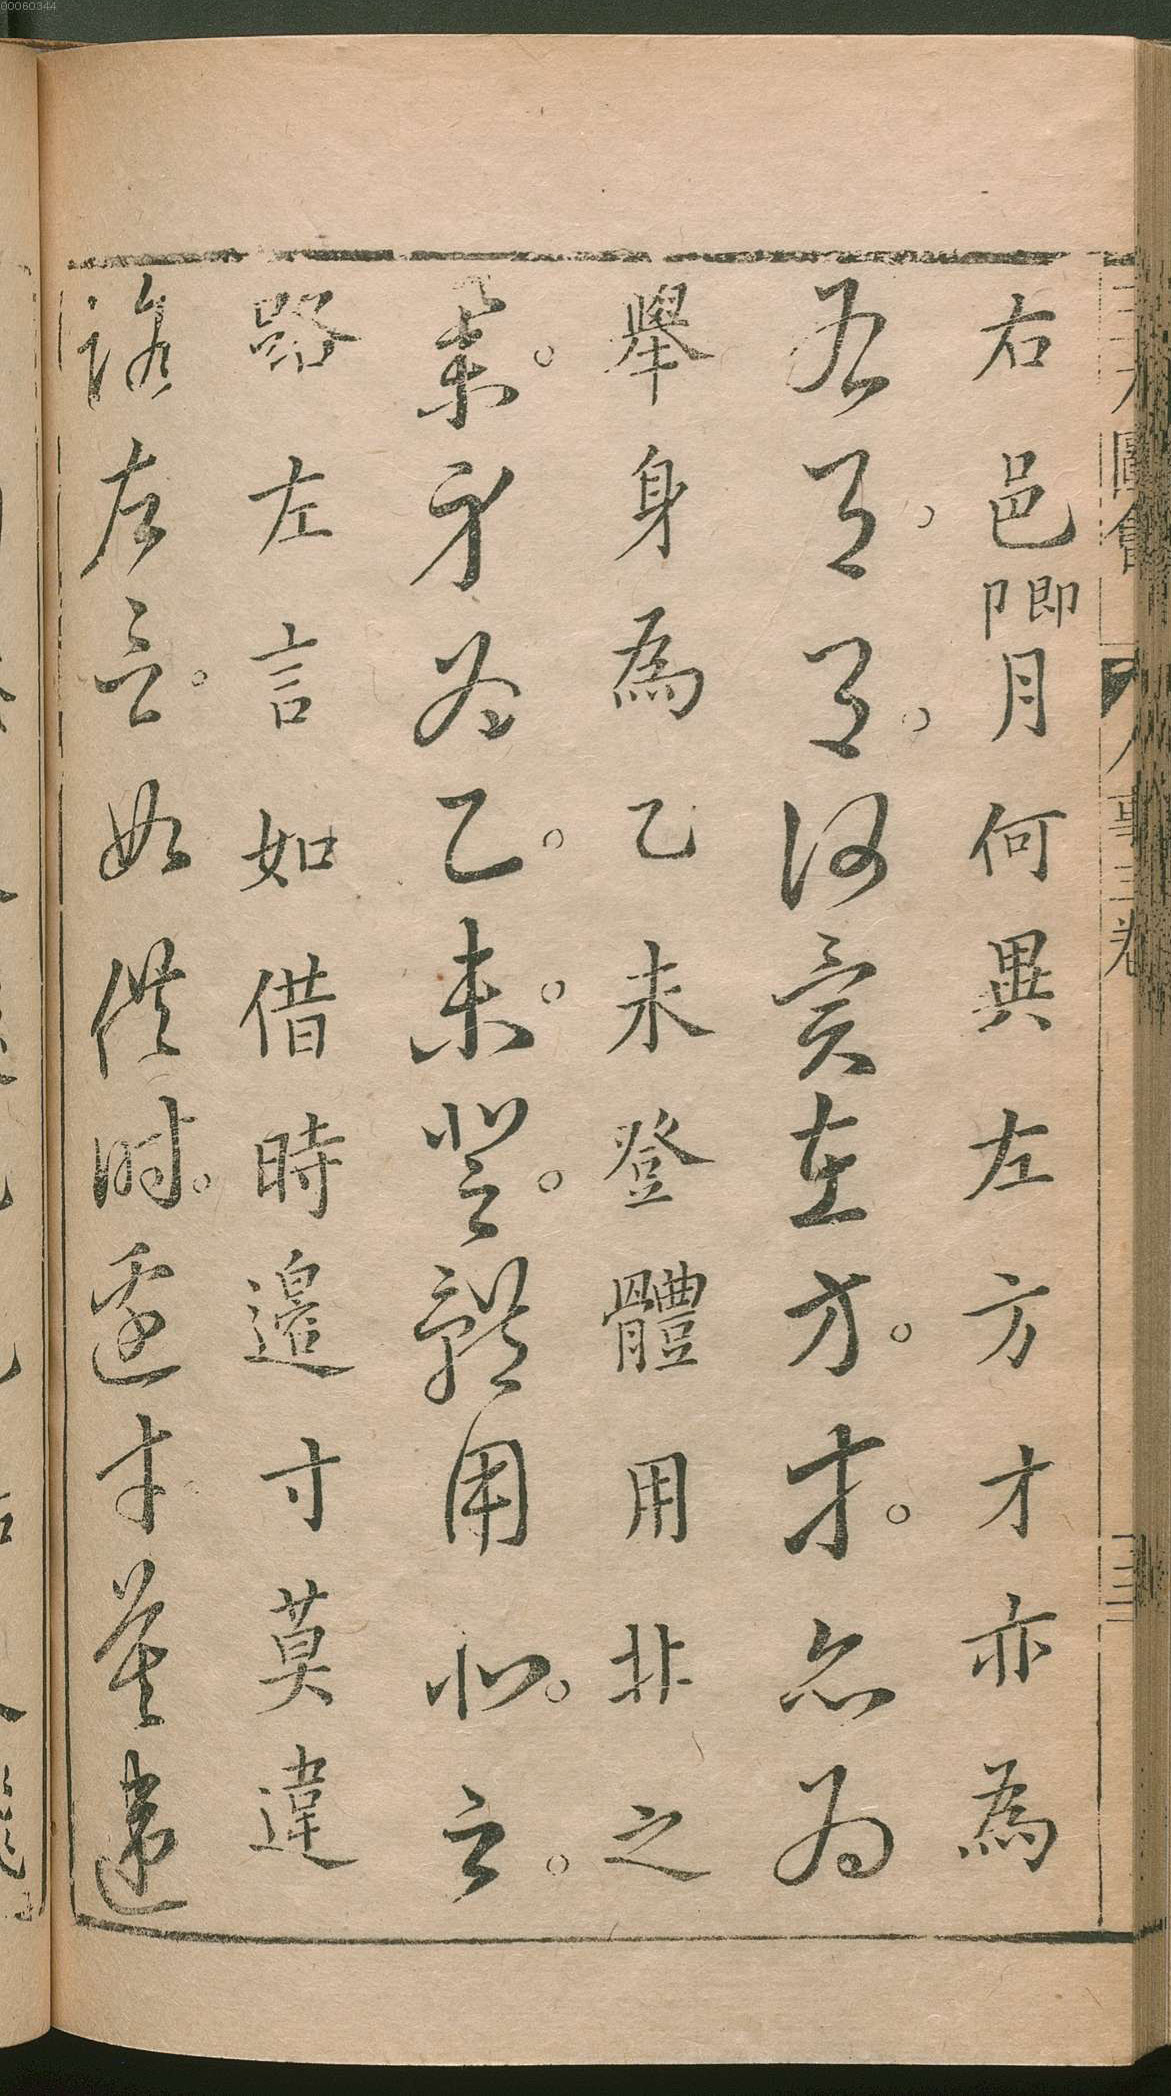 00060344
三才圖會 人事三卷 三三
右邑卩即月何異左方才亦為
右阝阝何異左方才亦為
舉身為乙未登體用非之
舉身為乙未登體用非之
路左言如借時邉寸莫違
路左言如借時邉寸莫違